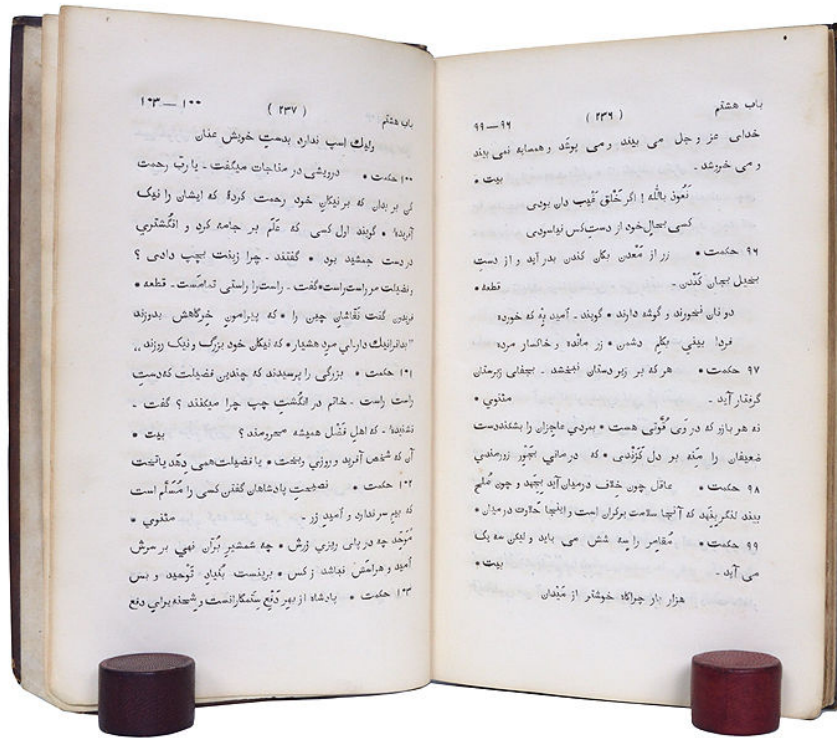 باب هشتم ( ۲۳۶ ) ۹۶ — ۹۹
خدای عز و جل می بیند و می پوشد و همسایه نمی بیند
و می خروشد - بیت •
نَعُوذ بِاللّه ! اگر خَلْق غَیب دان بودی
کسی بحالِ خود از دستِ کس نیاسودی
۹۶ حکمت • زر از مَعْدن بکان کندن بدر آید و از دستِ
بخیل بجان کَنْدن - قطعه •
دونان نخورند و گوشه دارند • گویند - اُمید بِه که خورده
فردا بینی بکامِ دشمن • زر مانده و خاکسار مرده
۹۷ حکمت • هر که بر زیر دستان نبخشد - بجفای زبرستان
گرفتار آید - مثنوي •
نه هر بازو که در وَی قُوّتی هست • بمردي عاجزان را بشکند دست
ضعیفان را مَنِه بر دل گَزندي • که درماني بجَوْرِ زورمندي
۹۸ حکمت • عاقل چون خلاف درمیان آید بجهد و چون صُلح
بیند لنگر بنهد که آنجا سلامت برکران است و اینجا حَلاوت درمیان •
۹۹ حکمت • مُقامر را سه شش می باید و لیکن سه یک
می آید - بیت •
هزار بار چراگاه خوشتر از مَیْدان
باب هشتم ( ۲۳۷ ) ۱۰۰ — ۱۰۳
ولیك اسپ ندارد بدستِ خویش عنان
۱۰۰ حکمت • درویشی در مناجات میگفت - یا ربّ رحمت
کن بر بدان که بر نیکان خود رحمت کردهٔ که ایشان را نیک
آفریدهٔ • گویند اول کسی که عَلَم بر جامه کرد و انگُشتري
در دست جمشید بود • گفتند - چرا زینت بچپ دادي ؟
و فضیلت مر راست راست • گفت - راست را راستی تمامست - قطعه •
فریدون گفت نقّاشانِ چین را • که پیرامونِ خرگاهش بدوزند
بدانرا نیك دار ای مردِ هشیار • که نیکان خود بزرگ و نیک روزند ,,
۱۰۱ حکمت • بزرگی را پرسیدند که چندین فضیلت که دستِ
راست راست - خاتم در انگُشتِ چپ چرا میکنند ؟ گفت -
نشنیدهٔ - که اهلِ فَضْل همیشه محرومند ؟ بیت •
آن که شخص آفرید و روزي و بخت • یا فضیلت همی دِهَد یا تخت
۱۰۲ حکمت • نصیحتِ پادشاهان گفتن کسی را مُسَلَّم است
که بیمِ سر ندارد و اُمیدِ زر - مثنوي •
مُوَحِّد چه در پای ریزي زرش • چه شمشیرِ بُرّان نهي بر سرش
اُمید و هراسَش نباشد ز کس • برینست بُنیادِ تَوْحید و بس
۱۰۳ حکمت • پادشاه از بهرِ دَفْعِ ستمگارانست و شِحنه برایِ دفعِ